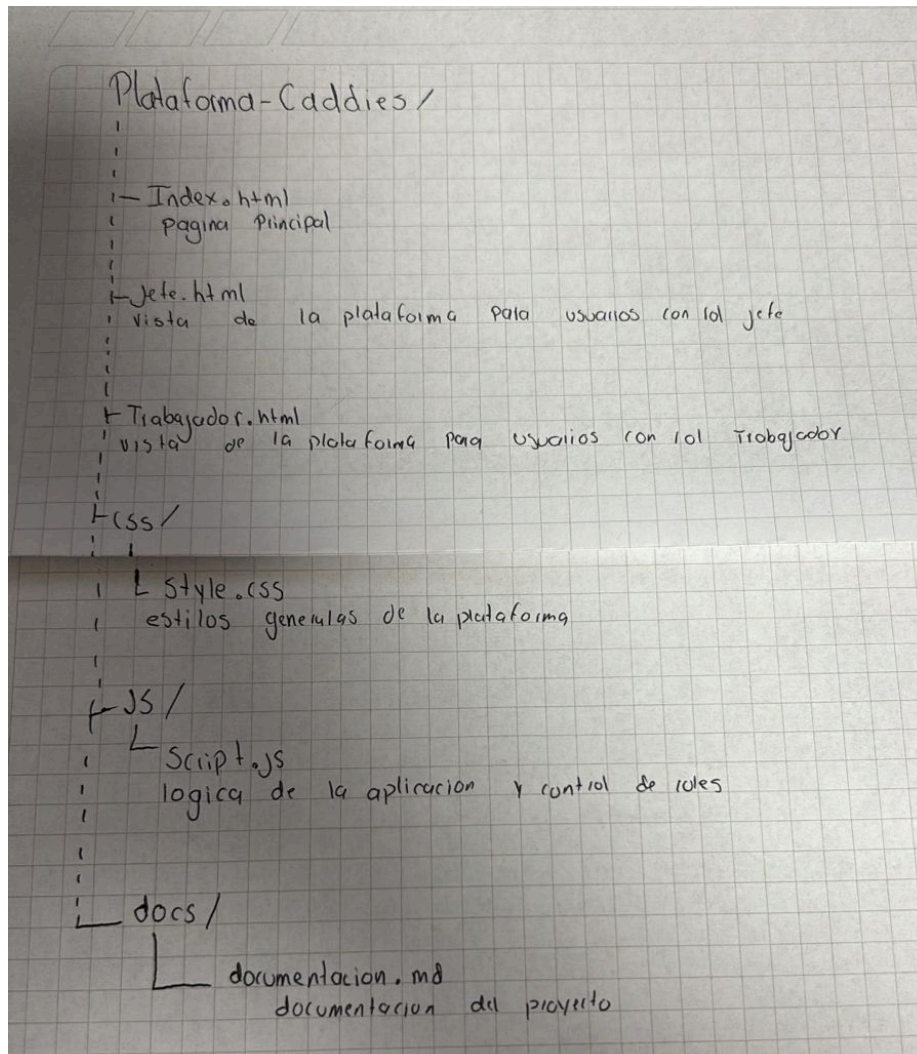 Plataforma-Caddies/
Index.html
pagina Principal
Jefe.html
vista de la plataforma para usuarios con rol jefe
Trabajador.html
vista de la plataforma para usuarios con rol Trabajador
css/
Style.css
estilos generulas de la plataforma
JS/
Script.js
logica de la aplicacion y control de roles
docs/
documentacion.md
documentacion del proyecto